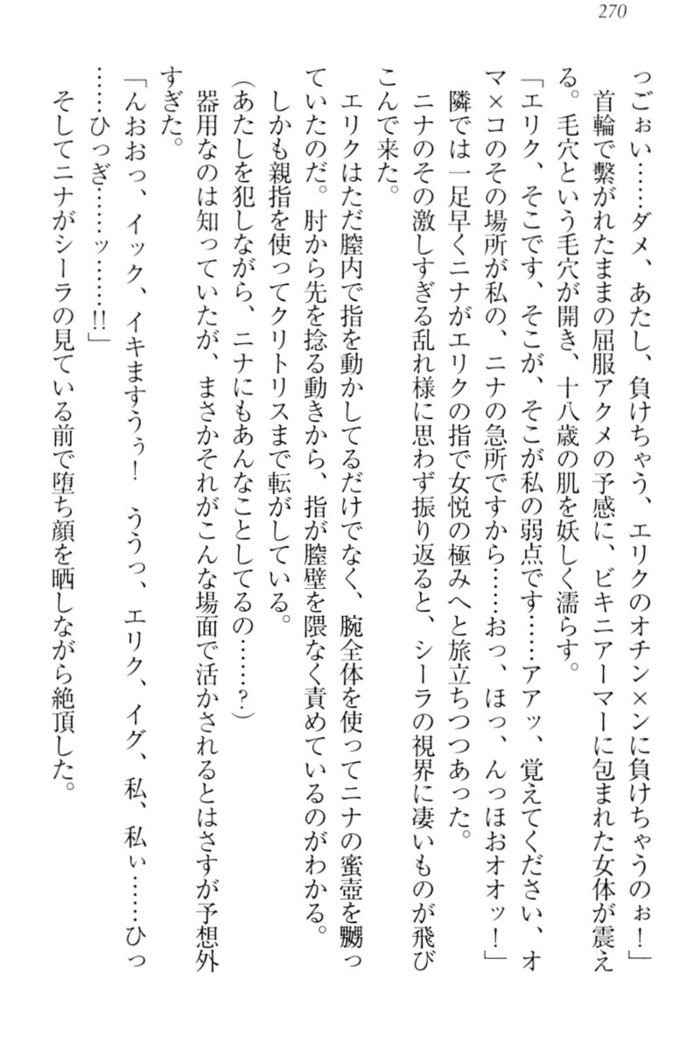 270
っごぉい……ダメ、あたし、負けちゃう、エリクのオチン×ンに負けちゃうのぉ！」
首輪で繋がれたままの屈服アクメの予感に、ビキニアーマーに包まれた女体が震え
る。毛穴という毛穴が開き、十八歳の肌を妖しく濡らす。
「エリク、そこです、そこが、そこが私の弱点です……アアッ、覚えてください、オ
マ×コのその場所が私の、ニナの急所ですから……おっ、ほっ、んっほおオオッ！」
隣では一足早くニナがエリクの指で女悦の極みへと旅立ちつつあった。
ニナのその激しすぎる乱れ様に思わず振り返ると、シーラの視界に凄いものが飛び
こんで来た。
エリクはただ膣内で指を動かしてるだけでなく、腕全体を使ってニナの蜜壺を嬲っ
ていたのだ。肘から先を捻る動きから、指が膣壁を隈なく責めているのがわかる。
しかも親指を使ってクリトリスまで転がしている。
（あたしを犯しながら、ニナにもあんなことしてるの……？）
器用なのは知っていたが、まさかそれがこんな場面で活かされるとはさすが予想外
すぎた。
「んおおっ、イック、イキますうぅ！　ううっ、エリク、イグ、私、私ぃ……ひっ
……ひっぎ……ッ……!!」
そしてニナがシーラの見ている前で堕ち顔を晒しながら絶頂した。